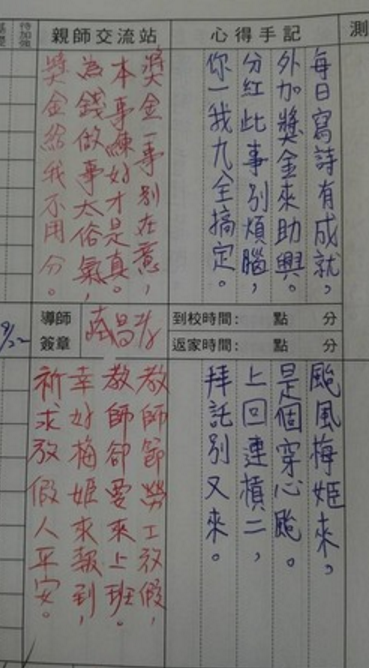 測
心得手記
親師交流站
待加強
每日寫詩有成就,
外加獎金來助興。
分紅此事別煩腦,
你一我九全搞定。
獎金一事別在意,
本事練好才是真。
為錢做事太俗氣,
獎金給我不用分。
到校時間: 點 分
返家時間: 點 分
導師
簽章
颱風梅姬來,
是個穿心颱。
上回連槓二,
拜託別又來。
教師節勞工放假,
教師卻要來上班。
幸好梅姬來報到,
祈求放假人平安。